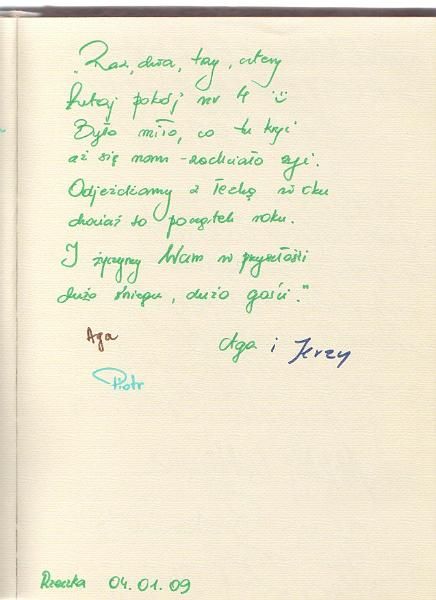 "Raz, dwa, trzy, cztery
tutaj pokój nr 4 :)
Było miło, co tu kryć
aż się nam zachciało żyć.
Odjeżdżamy z łezką w oku
chociaż to początek roku.
I życzymy Wam w przyszłości
dużo śniegu, dużo gości."
Aga
Aga i Jerzy
Piotr
Rzeczka 04.01.09